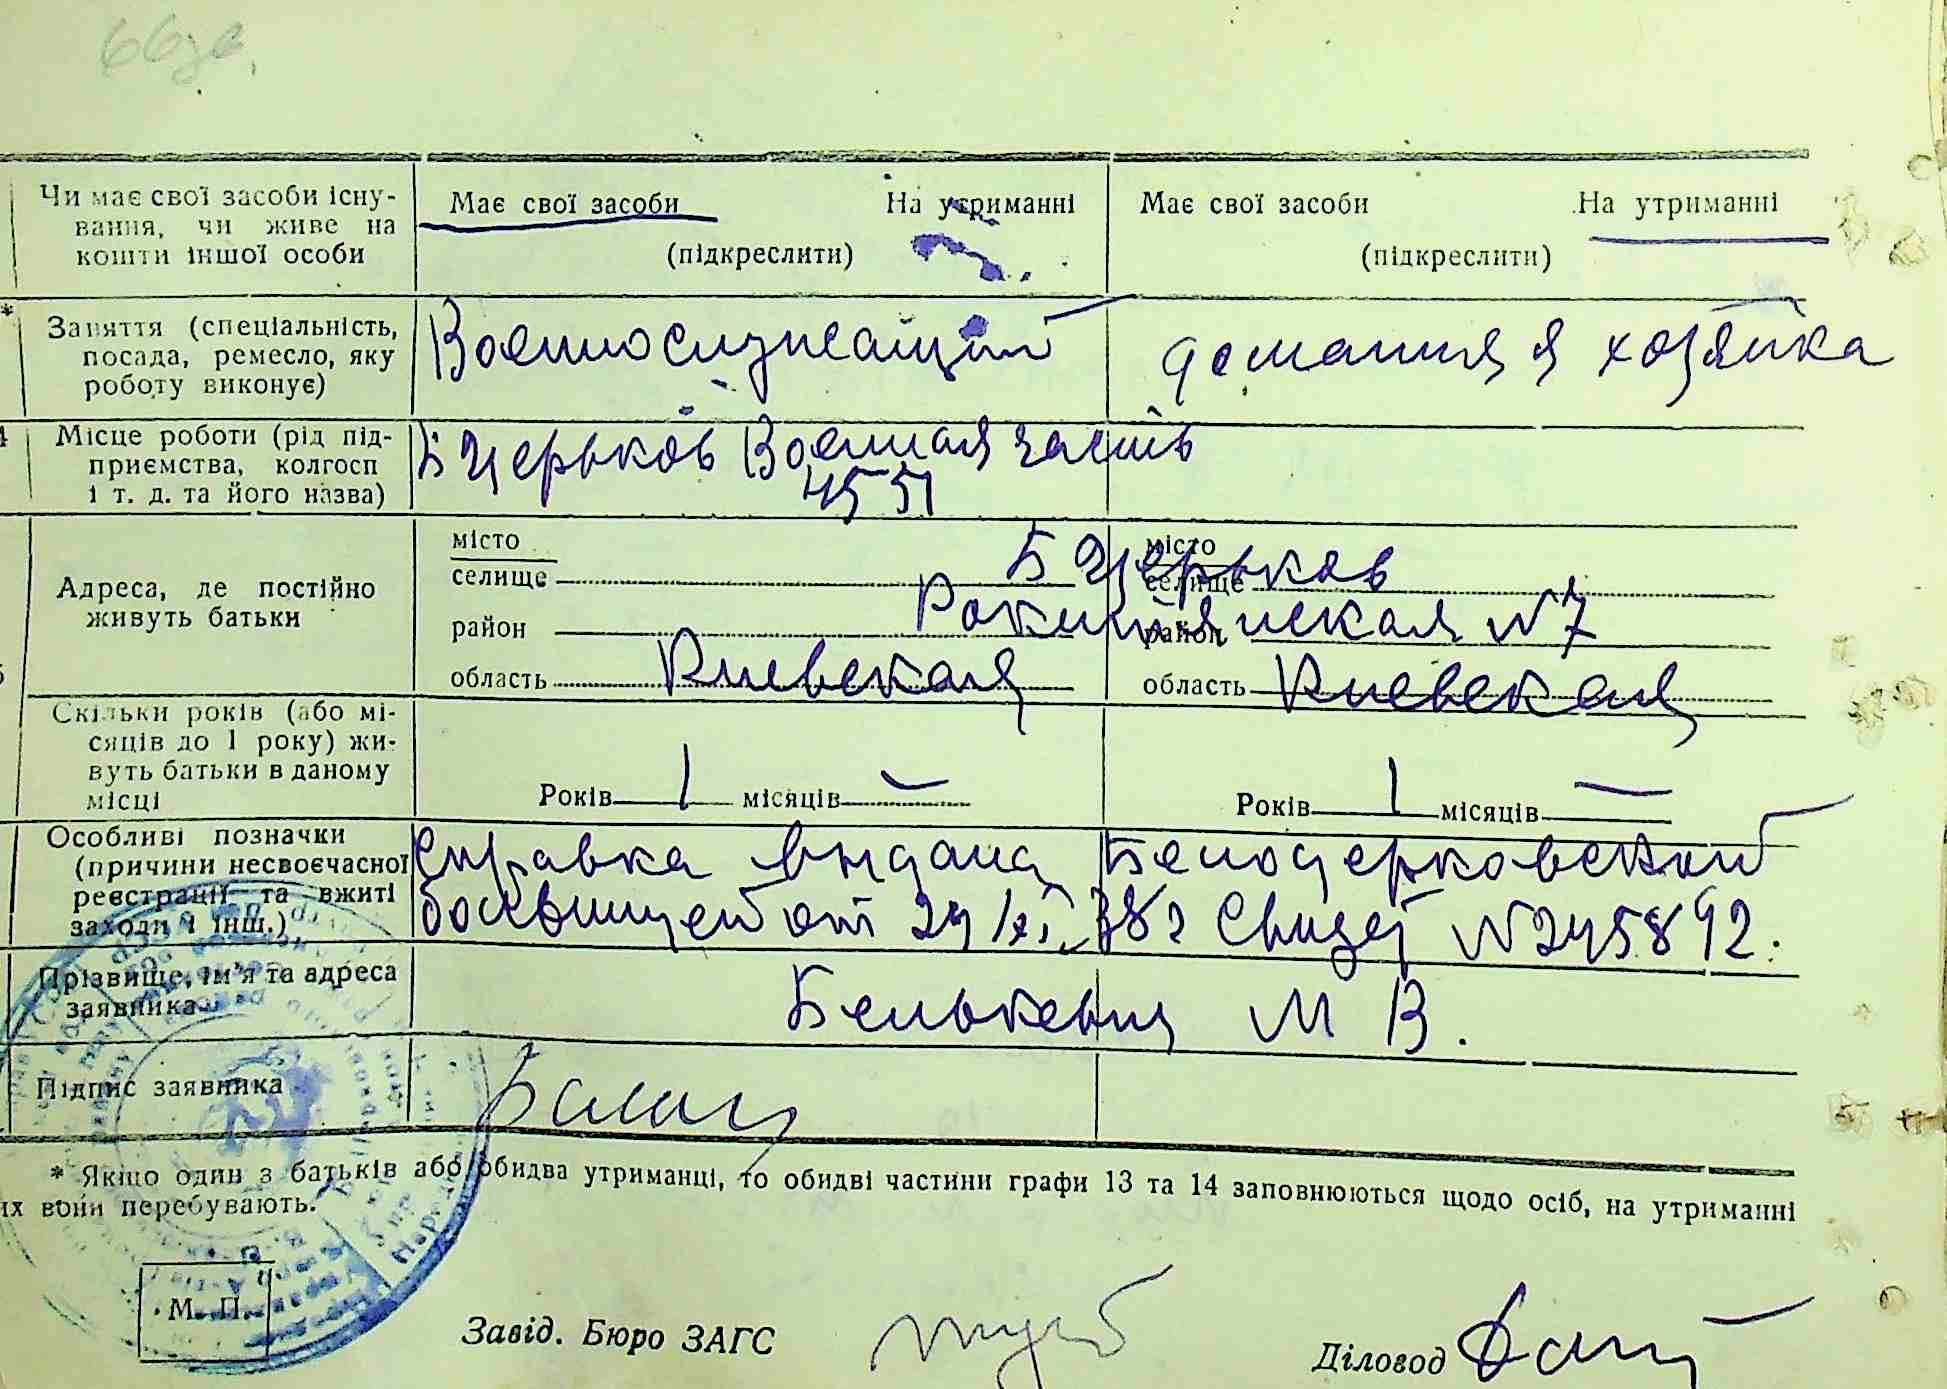 66
Чи має свої засоби існу-
вання, чи живе на
кошти іншої особи
Має свої засоби На утриманні
(підкреслити)
Має свої засоби На утриманні
(підкреслити)
* Заняття (спеціальність,
посада, ремесло, яку
роботу виконує)
Военнослужащий
домашняя хозяйка
Місце роботи (рід під-
приємства, колгосп
і т. д. та його назва)
Б Церьков Военная часть
4551
Адреса, де постійно
живуть батьки
місто
селище
район
область Киевская
місто
селище
район
область Киевская
Б Церьков
Рокитянская N7
Скільки років (або мі-
сяців до 1 року) жи-
вуть батьки в даному
місці
Років 1 місяців —
Років 1 місяців —
Особливі позначки
(причини несвоєчасної
реєстрації та вжиті
заходи і інш.)
Справка выдана Белоцерковской
больницей от 24/XI 38 г Свидет N 245892.
Прізвище, ім'я та адреса
заявника
Белькевич М В.
Підпис заявника
* Якщо один з батьків або обидва утриманці, то обидві частини графи 13 та 14 заповнюються щодо осіб, на утриманні
их вони перебувають.
М. П.
Завід. Бюро ЗАГС
Діловод